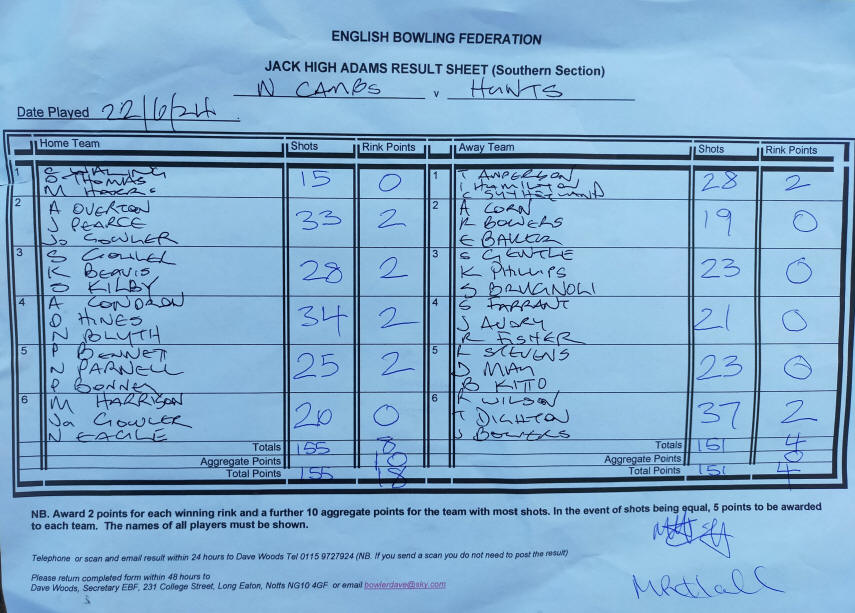 ENGLISH BOWLING FEDERATION
JACK HIGH ADAMS RESULT SHEET (Southern Section)
N CAMBS v HUNTS
Date Played 22/6/24
Home Team Shots Rink Points Away Team Shots Rink Points
1 S HALING 15 0 1 T ANDERSON 28 2
S THOMAS I HAMILTON
M HARRIS C
2 A OVERTON 33 2 2 A CORN 19 0
J PEARCE R BOWERS
Jo GOWLER E BAKER
3 S GOWLER 28 2 3 S GENTLE 23 0
K BEAVIS K PHILLIPS
S KILBY S BRUGNOLI
4 A CONDRON 34 2 4 S FARRANT 21 0
D HINES J AUDRY
N BLYTH R FISHER
5 P BENNET 25 2 5 L STEVENS 23 0
N PARNELL D MAY
P BONNEY B KITTO
6 M HARRISON 20 0 6 R WILSON 37 2
Ja GOWLER T DIGHTON
N EAGLE J BOWERS
Totals 155 8 Totals 151 4
Aggregate Points 10 Aggregate Points 0
Total Points 155 18 Total Points 151 4
NB. Award 2 points for each winning rink and a further 10 aggregate points for the team with most shots. In the event of shots being equal, 5 points to be awarded
to each team. The names of all players must be shown.
Telephone or scan and email result within 24 hours to Dave Woods Tel 0115 9727924 (NB. If you send a scan you do not need to post the result)
Please return completed form within 48 hours to
Dave Woods, Secretary EBF, 231 College Street, Long Eaton, Notts NG10 4GF or email bowlerdave@sky.com